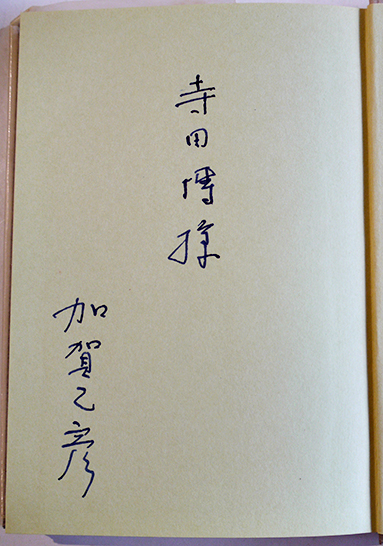 寺田博様
加賀乙彦